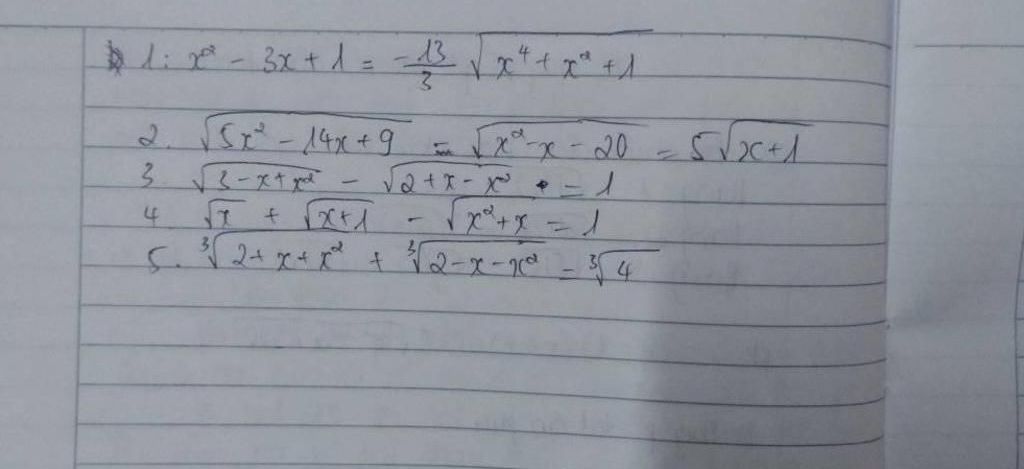 1: x² - 3x + 1 = -13/3 √(x⁴ + x² + 1)
2. √(5x² - 14x + 9) = √(x² - x - 20) = 5√(x+1)
3 √(3 - x + x²) - √(2 + x - x²) = 1
4. √x + √(x+1) - √(x² + x) = 1
5. ∛(2 + x + x²) + ∛(2 - x - x²) = ∛4